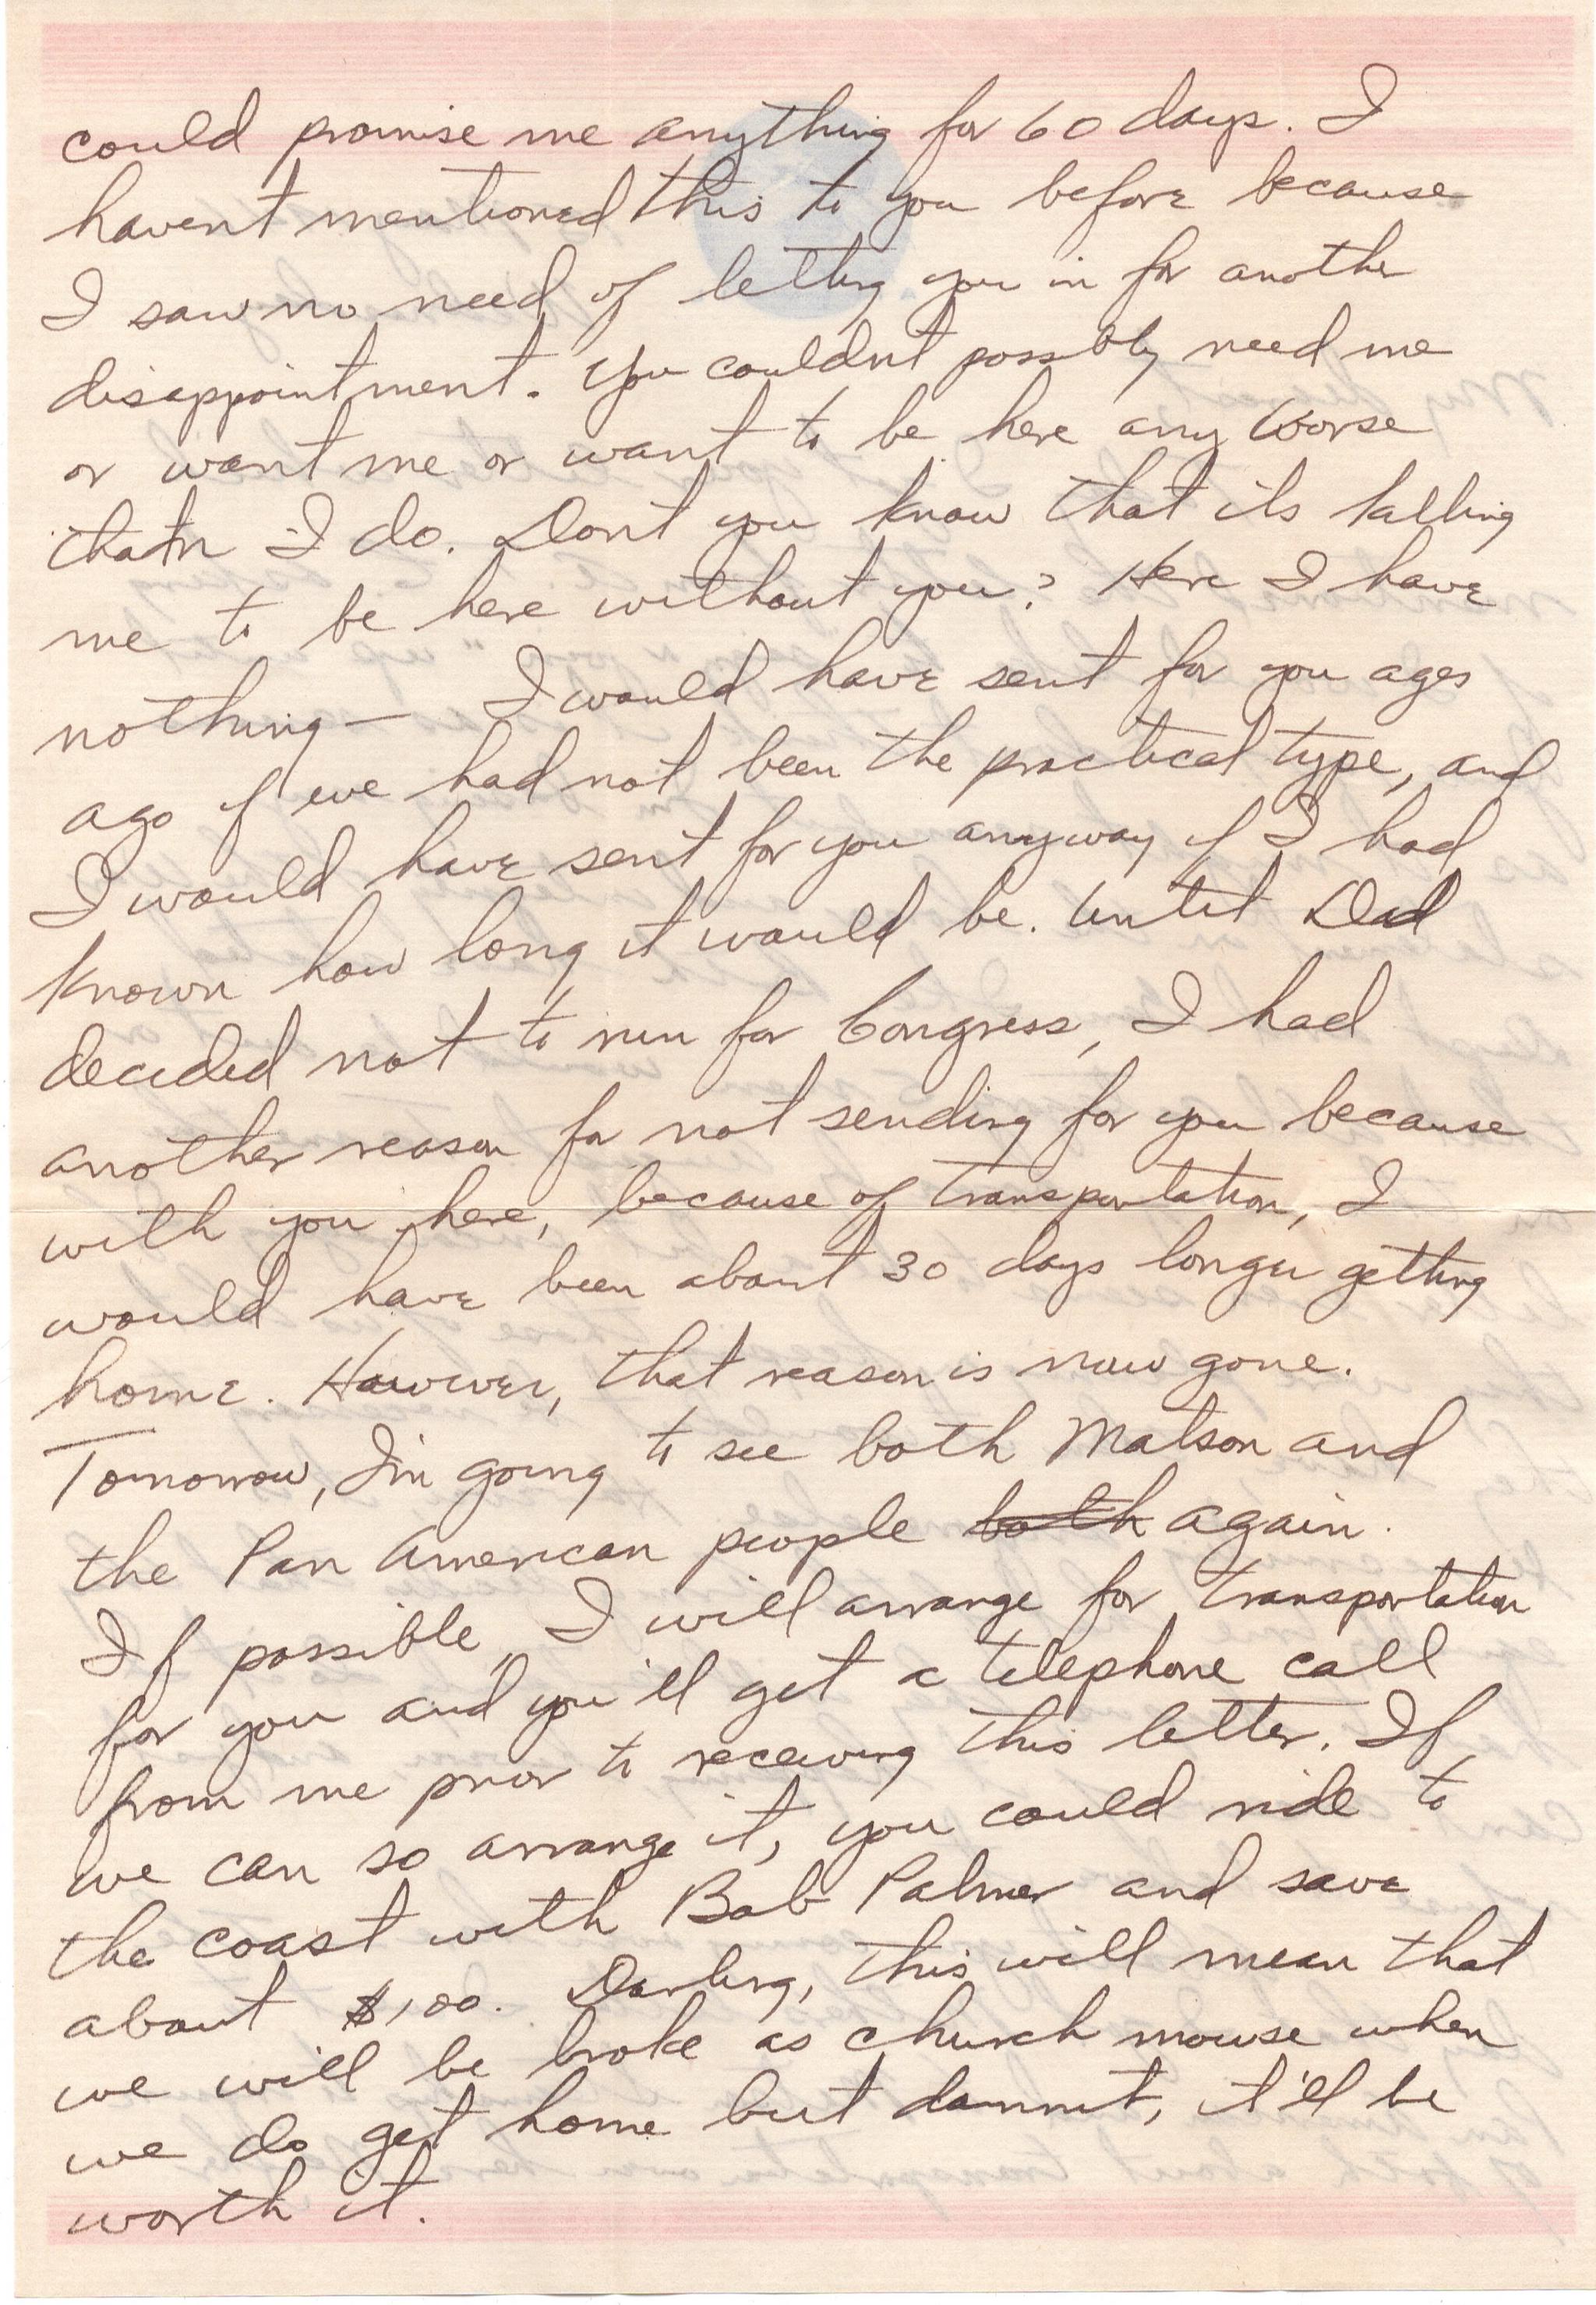 could promise me anything for 60 days. I
havent mentioned this to you before because
I saw no need of letting you in for another
disappointment. You couldnt possibly need me
or want me or want to be here any worse
thatn I do. Dont you know that its killing
me to be here without you? Here I have
nothing — I would have sent for you ages
ago if we had not been the practical type, and
I would have sent for you anyway if I had
known how long it would be. Until Dad
decided not to run for Congress, I had
another reason for not sending for you because
with you here, because of transportation, I
would have been about 30 days longer getting
home. However, that reason is now gone.
Tomorrow, I'm going to see both Matson and
the Pan American people both again.
If possible, I will arrange for transportation
for you and you'll get a telephone call
from me prior to receiving this letter. If
we can so arrange it, you could ride to
the coast with Bob Palmer and save
about $100. Darling, this will mean that
we will be broke as church mouse when
we do get home but dammit, it'll be
worth it.